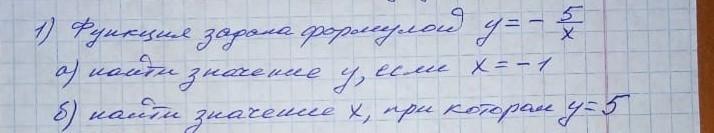 1) Функция задана формулой y = - 5/x
а) найти значение y, если x = -1
б) найти значение x, при котором y = 5